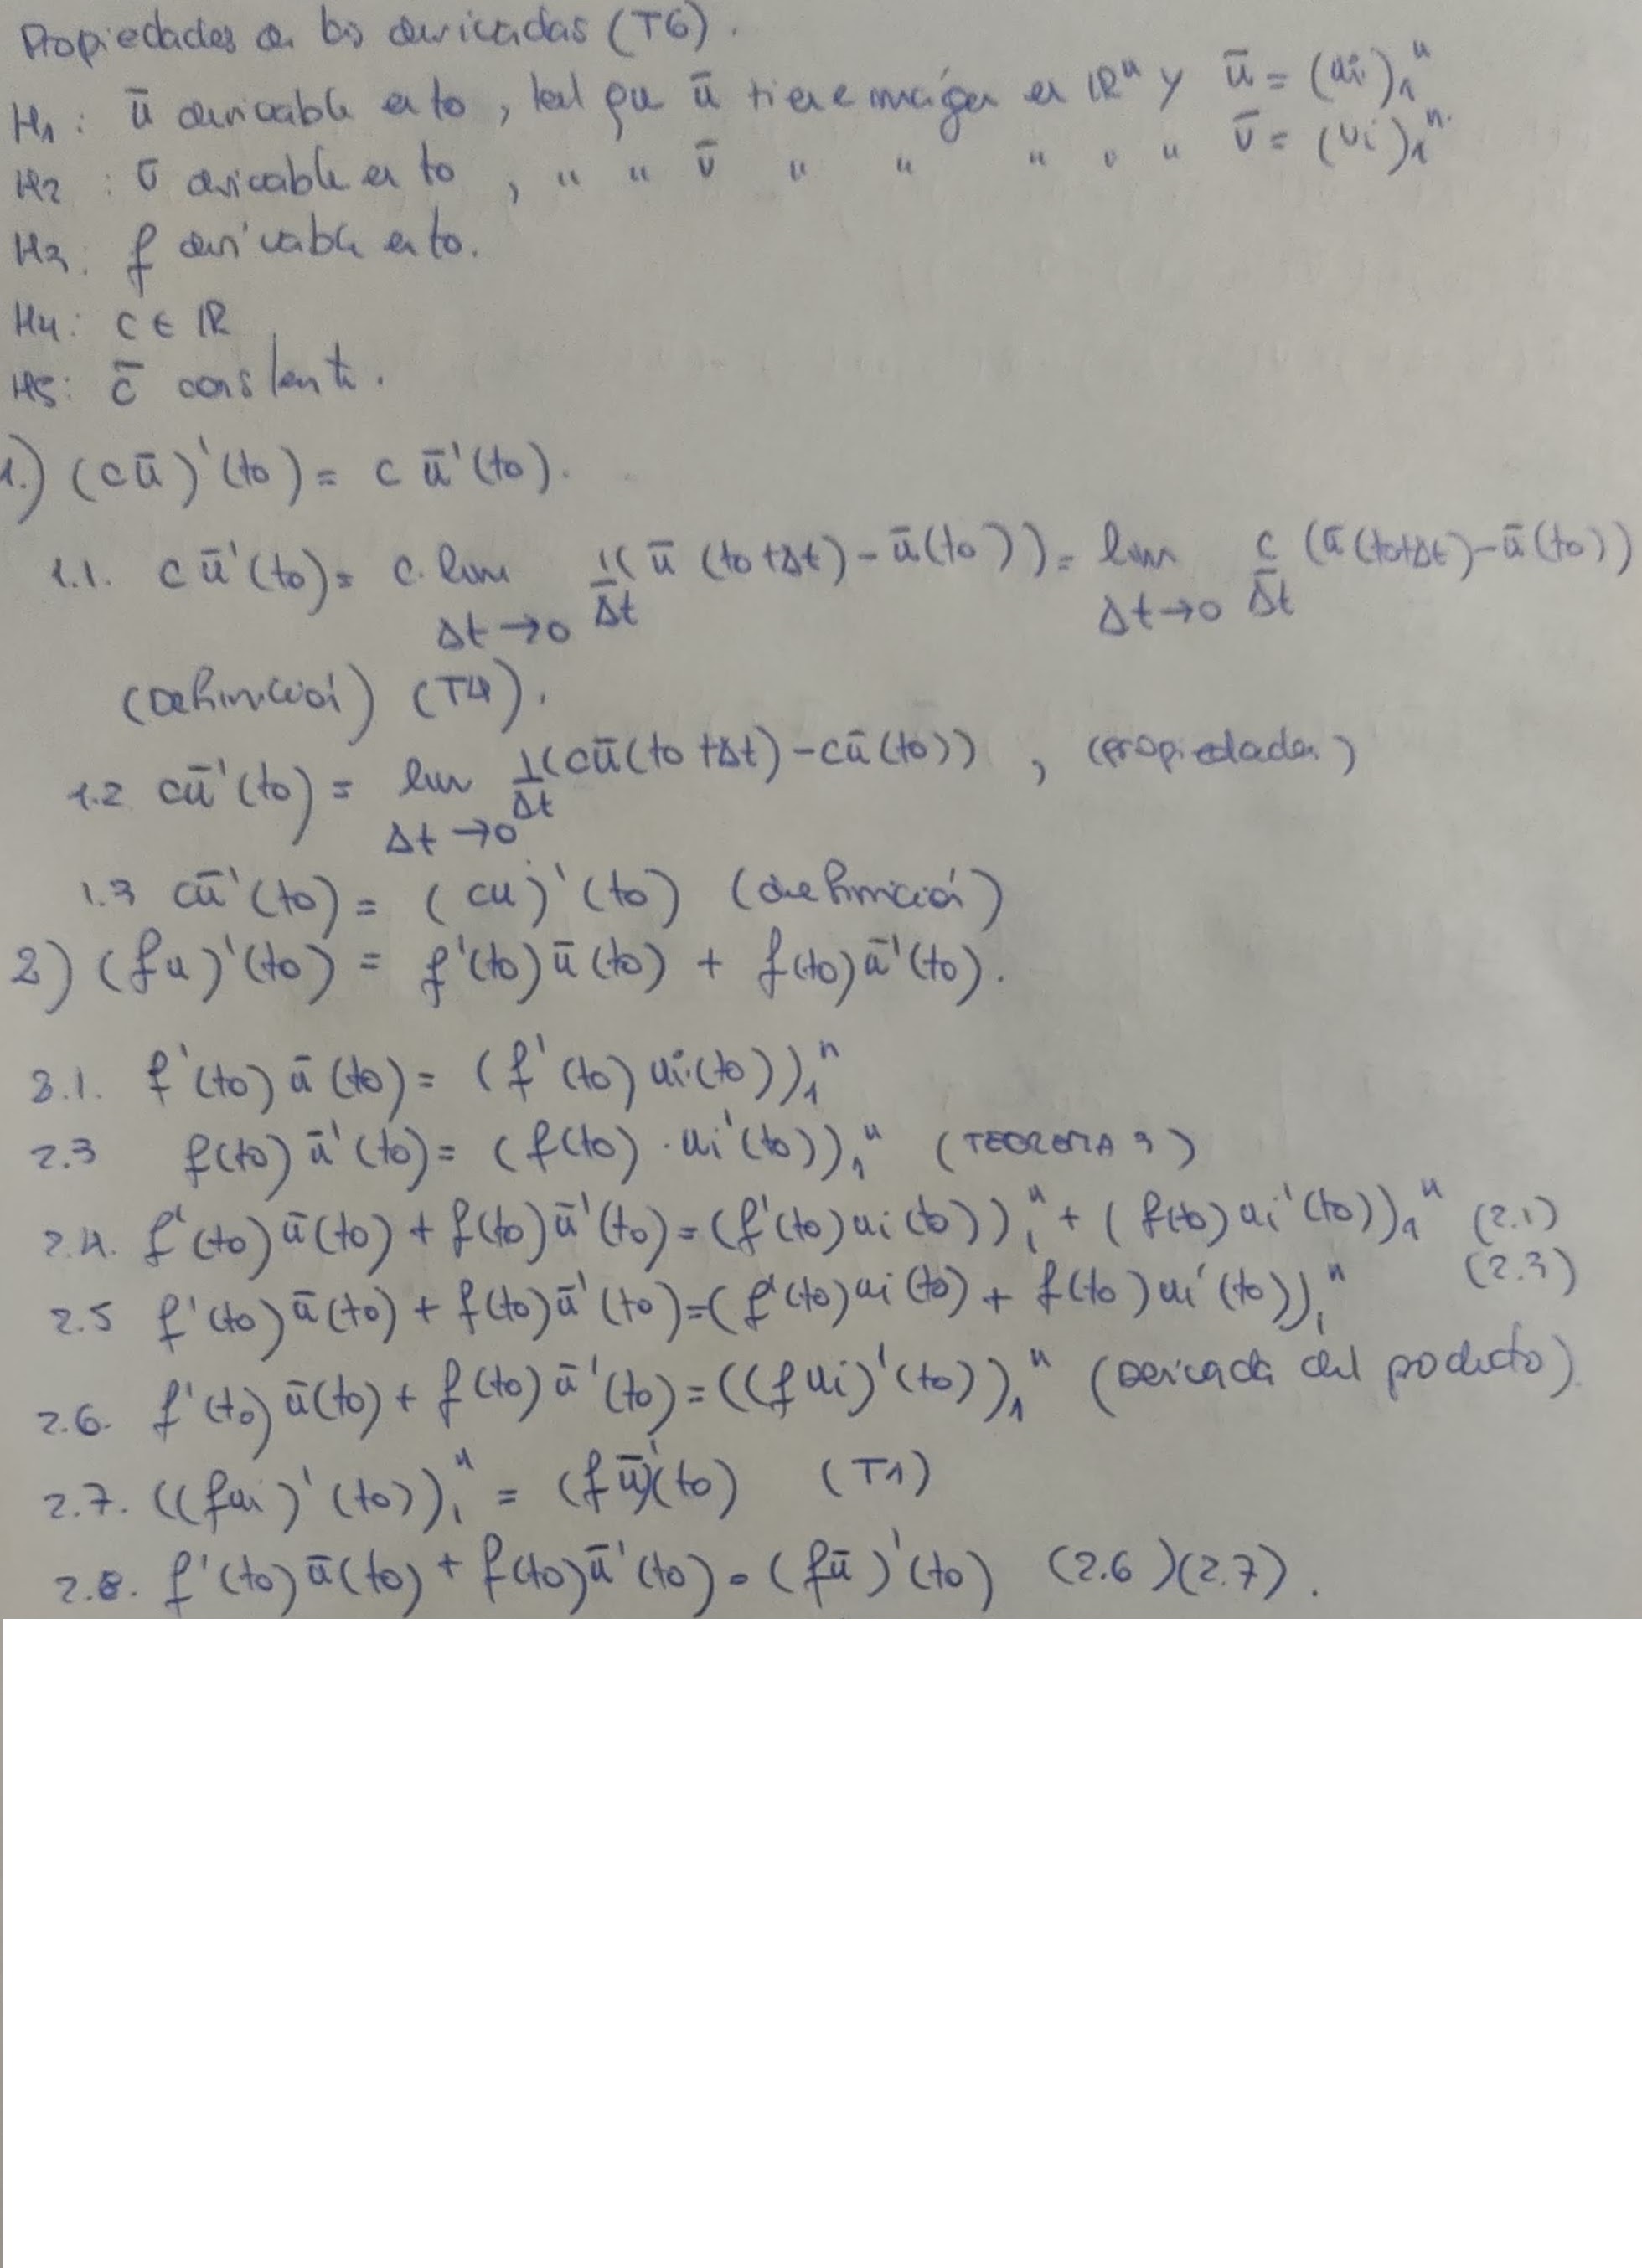 Propiedades de las derivadas (T6).
H1: ū derivable en to, tal que ū tiene imágen en ℝⁿ y ū = (ui)₁ⁿ
H2: v̄ derivable en to, " " v̄ " " " " " v̄ = (vi)₁ⁿ.
H3: f derivable en to.
H4: c ∈ ℝ
H5: c̄ constante.
1.) (cū)'(to) = c ū'(to).
1.1. c ū'(to) = c. lim Δt→0 1/Δt (ū (to+Δt) - ū(to)) = lim Δt→0 c/Δt (ū(to+Δt) - ū(to))
(Definición) (T4).
1.2 cū'(to) = lim Δt→0 1/Δt (cū(to+Δt) - cū(to)) , (propiedades)
1.3 cū'(to) = (cu)'(to) (definición)
2) (fu)'(to) = f'(to)ū(to) + f(to)ū'(to).
2.1. f'(to) ū(to) = (f'(to) ui(to))₁ⁿ
2.3 f(to) ū'(to) = (f(to) · ui'(to))₁ⁿ (TEOREMA 3)
2.4. f'(to)ū(to) + f(to)ū'(to) = (f'(to)ui(to))₁ⁿ + (f(to)ui'(to))₁ⁿ (2.1)
(2.3)
2.5 f'(to)ū(to) + f(to)ū'(to) = (f'(to)ui(to) + f(to)ui'(to))₁ⁿ
2.6. f'(to)ū(to) + f(to)ū'(to) = ((fui)'(to))₁ⁿ (Derivada del producto).
2.7. ((fui)'(to))₁ⁿ = (fū)'(to) (T1)
2.8. f'(to)ū(to) + f(to)ū'(to) = (fū)'(to) (2.6)(2.7).